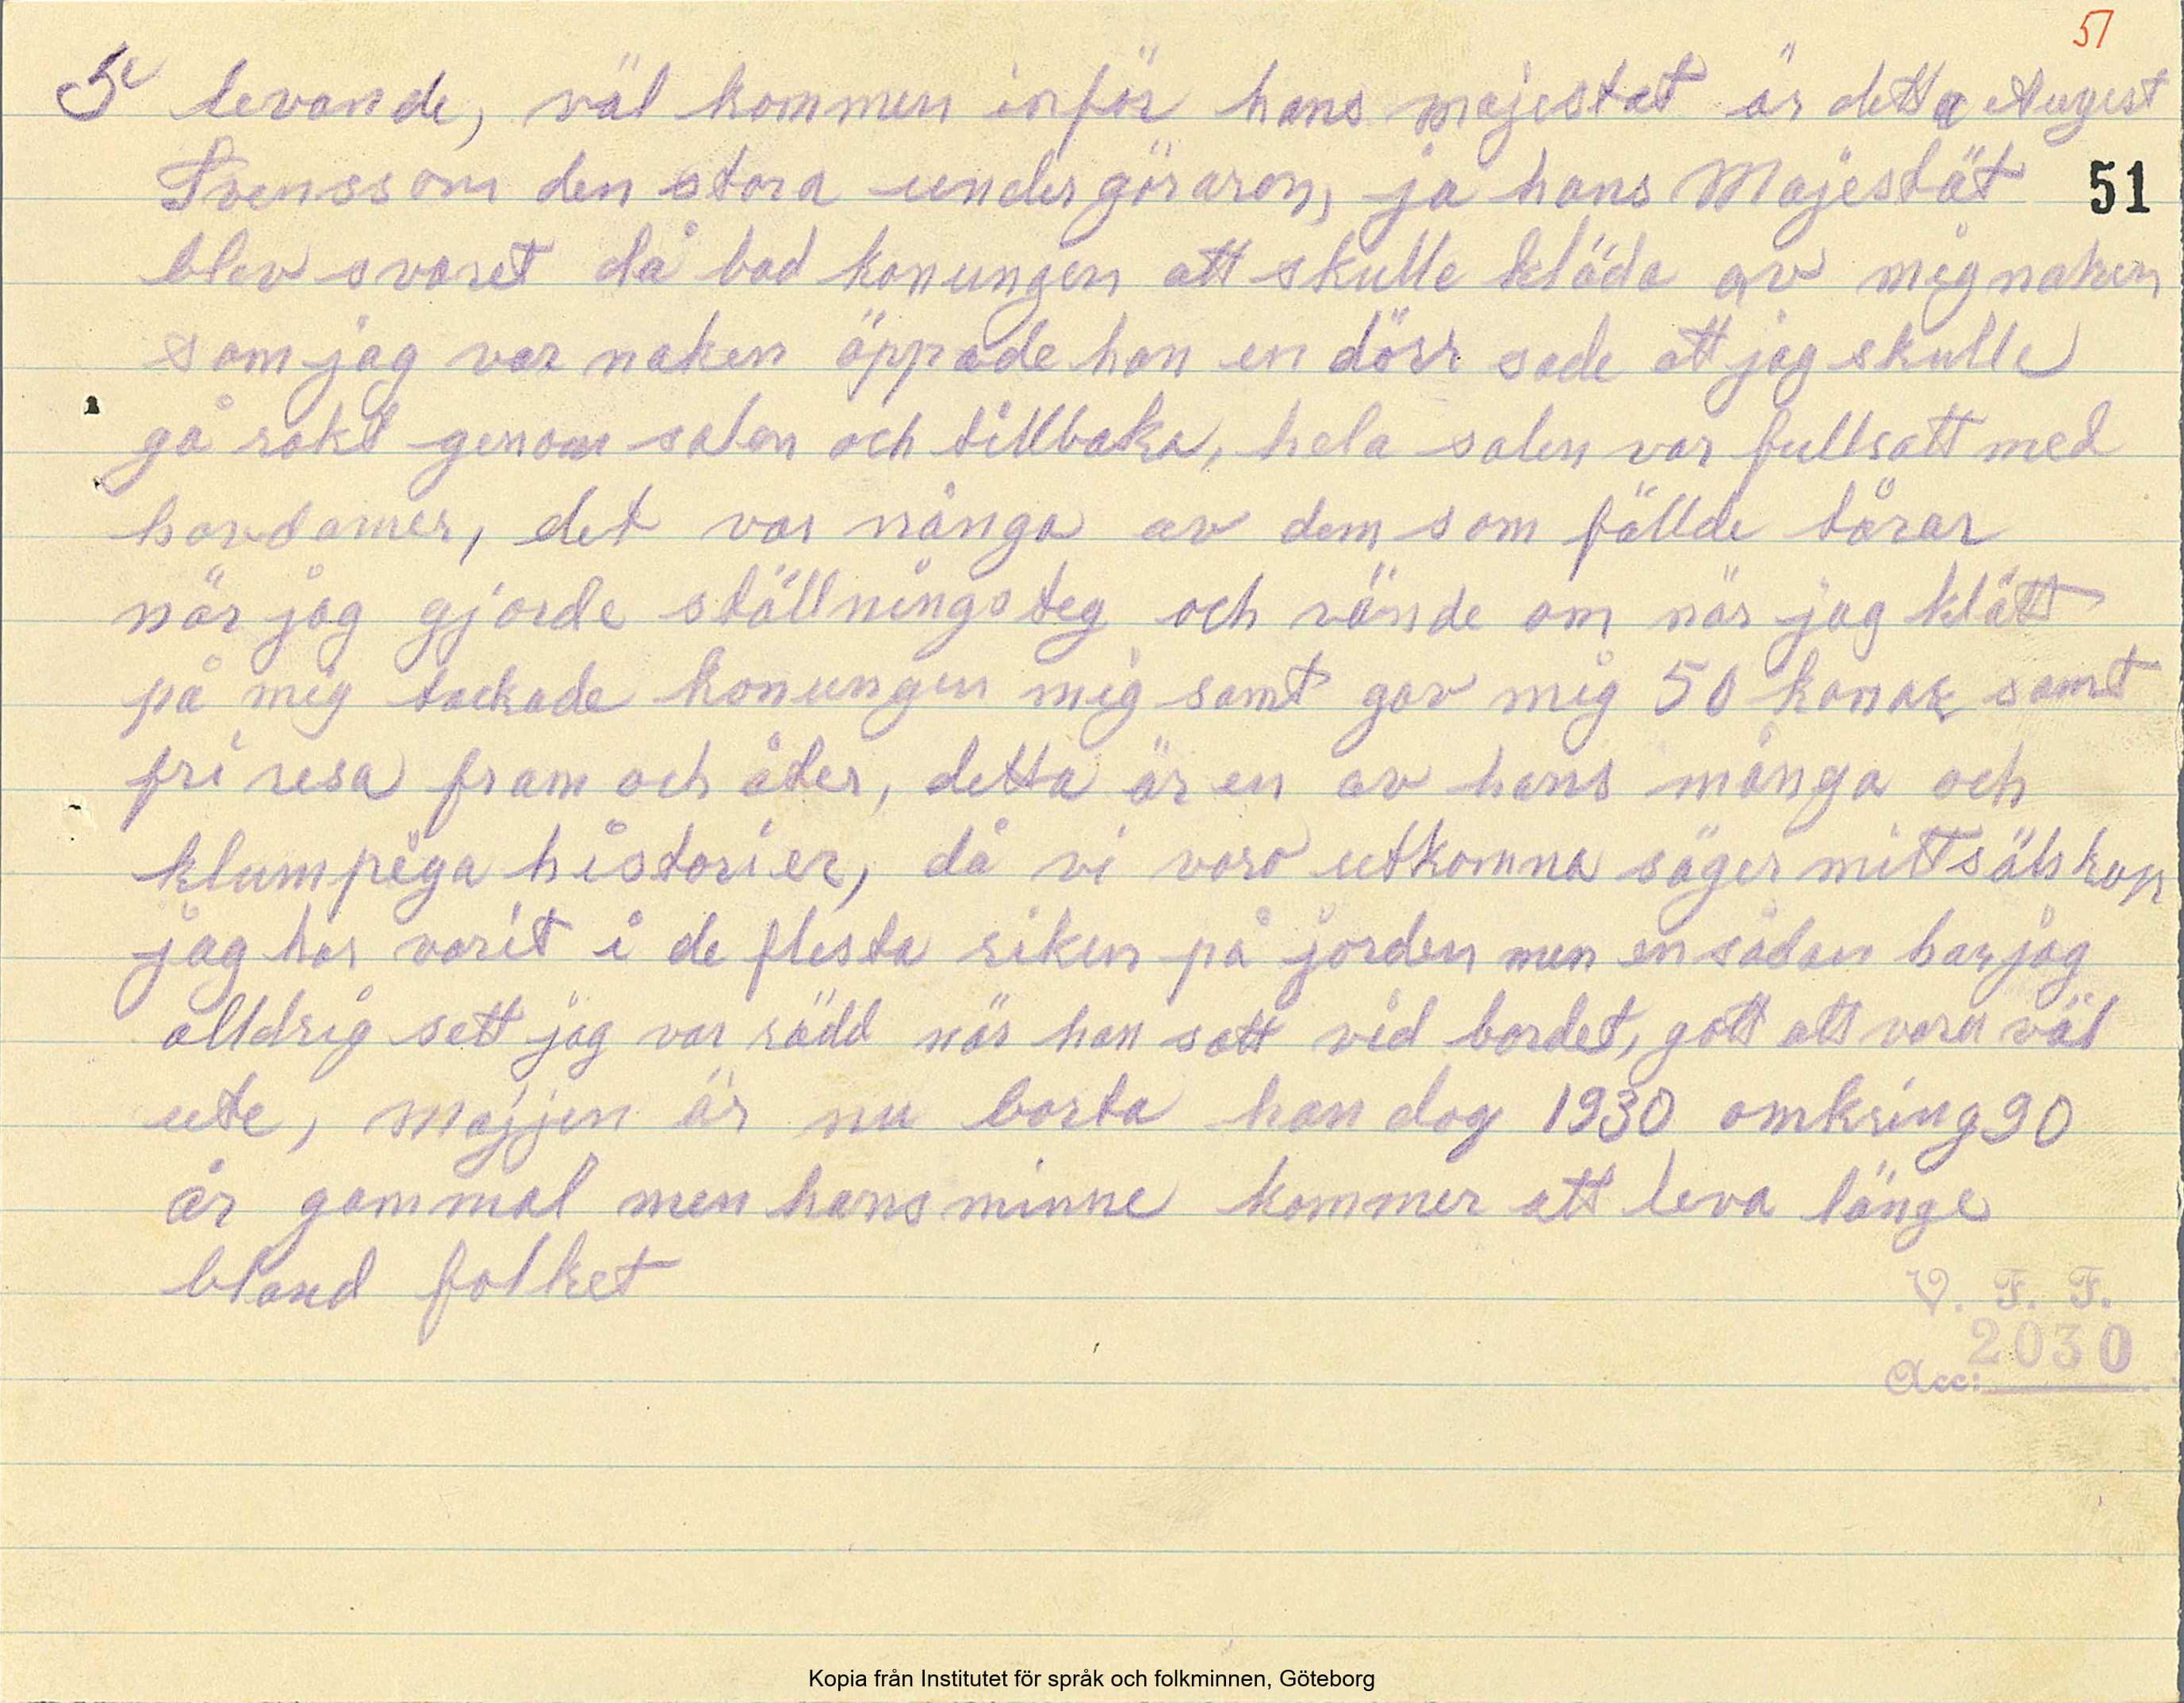 51
5 levande, väl kommen inför hans majestet är detta August
Svensson den stora undergöraron, ja hans Majestät
51
blev svaret då bad konungen att skulle kläda av mig naken
som jag var naken öppade han en dörr sade att jag skulle
gå rakt genom salen och tillbaka, hela salen var fullsatt med
havdamer, det var många av dem som fällde tårar
når jag gjorde ställningsteg och vände om når jag klätt
på mig tackade konungen mig samt gav mig 50 konor samt
fri resa fram och åter, detta är en av hans många och
klumpiga historier, då vi voro utkomna säger mitt sälskap
jag har varit i de flesta riken på jorden men en sådan har jag
alldrig sett jag var rädd når han satt vid bordet, gott att vara väl
ute, Majjen är nu borta han dog 1930 omkring 90
år gammal men hans minne kommer att leva länge
bland folket
V. F. F.
2030
Acc:
Kopia från Institutet för språk och folkminnen, Göteborg